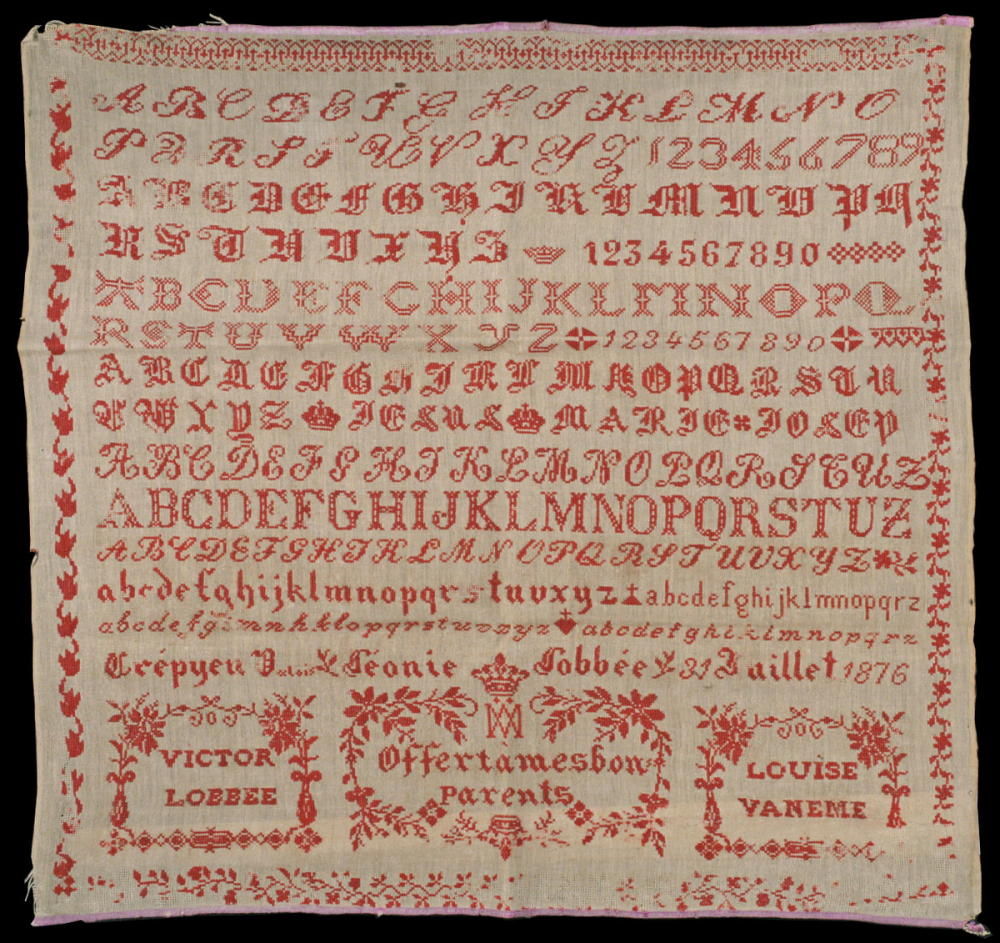 A B C D E F G H I K L M N O
P Q R S T U V X Y Z 1 2 3 4 5 6 7 8 9
A B C D E F G H I K L M N O P Q
R S T U V X Y Z 1 2 3 4 5 6 7 8 9 0
A B C D E F G H I J K L M N O P Q
R S T U V W X Y Z 1 2 3 4 5 6 7 8 9 0
A B C D E F G H J K L M N O P Q R S T U
V W X Y Z JESUS MARIE JOSEP
A B C D E F G H I K L M N O P Q R S T U Z
A B C D E F G H I J K L M N O P Q R S T U Z
A B C D E F G H I K L M N O P Q R S T U V X Y Z
a b c d e f g h i j k l m n o p q r s t u v x y z a b c d e f g h i j k l m n o p q r z
a b c d e f g i m n h k l o p q r s t u v x y z a b c d e f g h i k l m n o p q r z
Crépyen Valois Léonie Lobbée 31 Juillet 1876
VICTOR
LOBBEE
Offertàmesbon
parents
LOUISE
VANEME